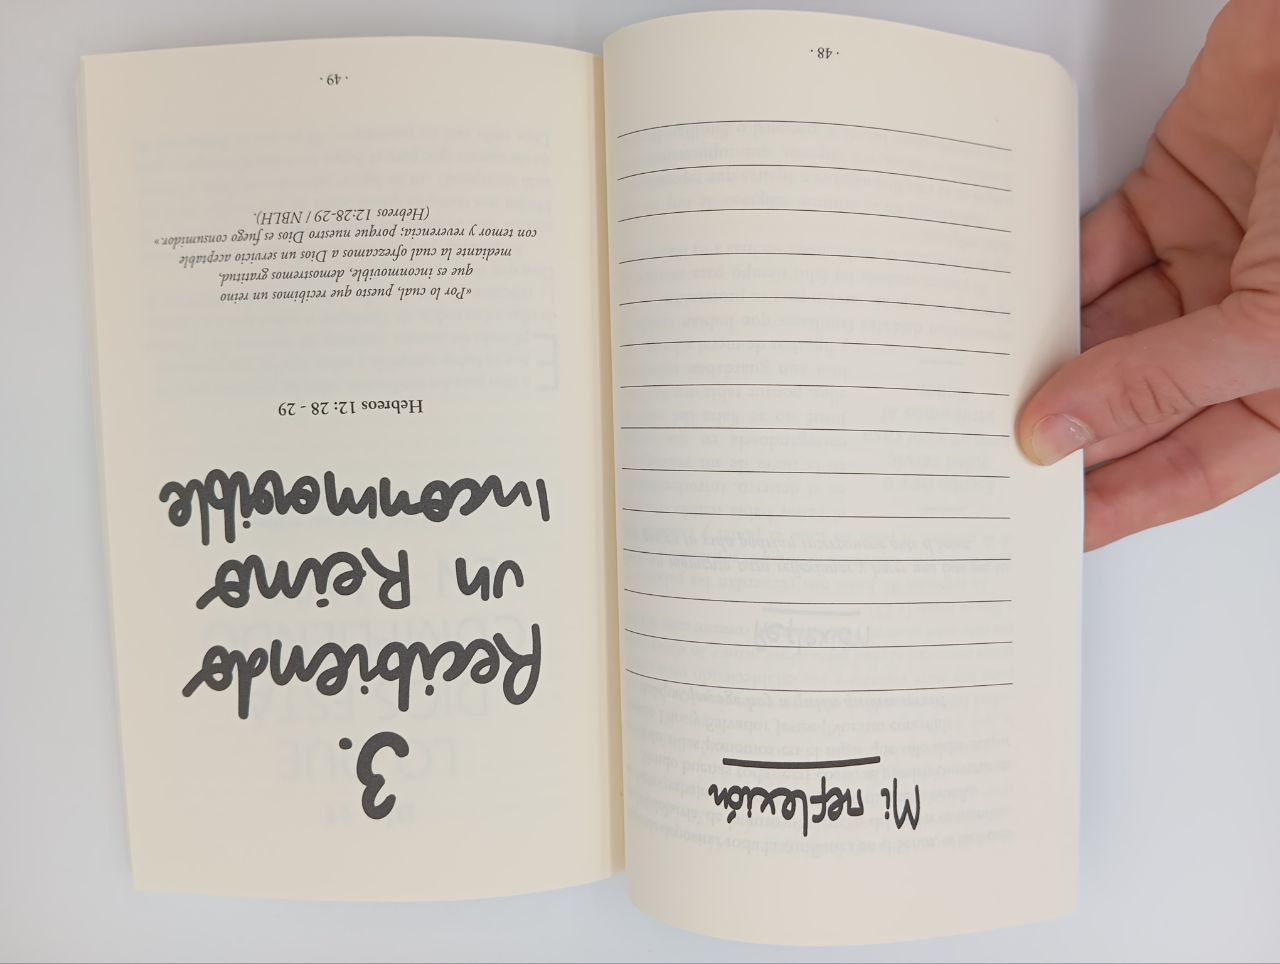 Mi reflexión
· 48 ·
3.
Recibiendo
un Reino
Inconmovible
Hebreos 12: 28 - 29
«Por lo cual, puesto que recibimos un reino
que es inconmovible, demostremos gratitud,
mediante la cual ofrezcamos a Dios un servicio aceptable
con temor y reverencia; porque nuestro Dios es fuego consumidor.»
(Hebreos 12:28-29 / NBLH).
· 49 ·